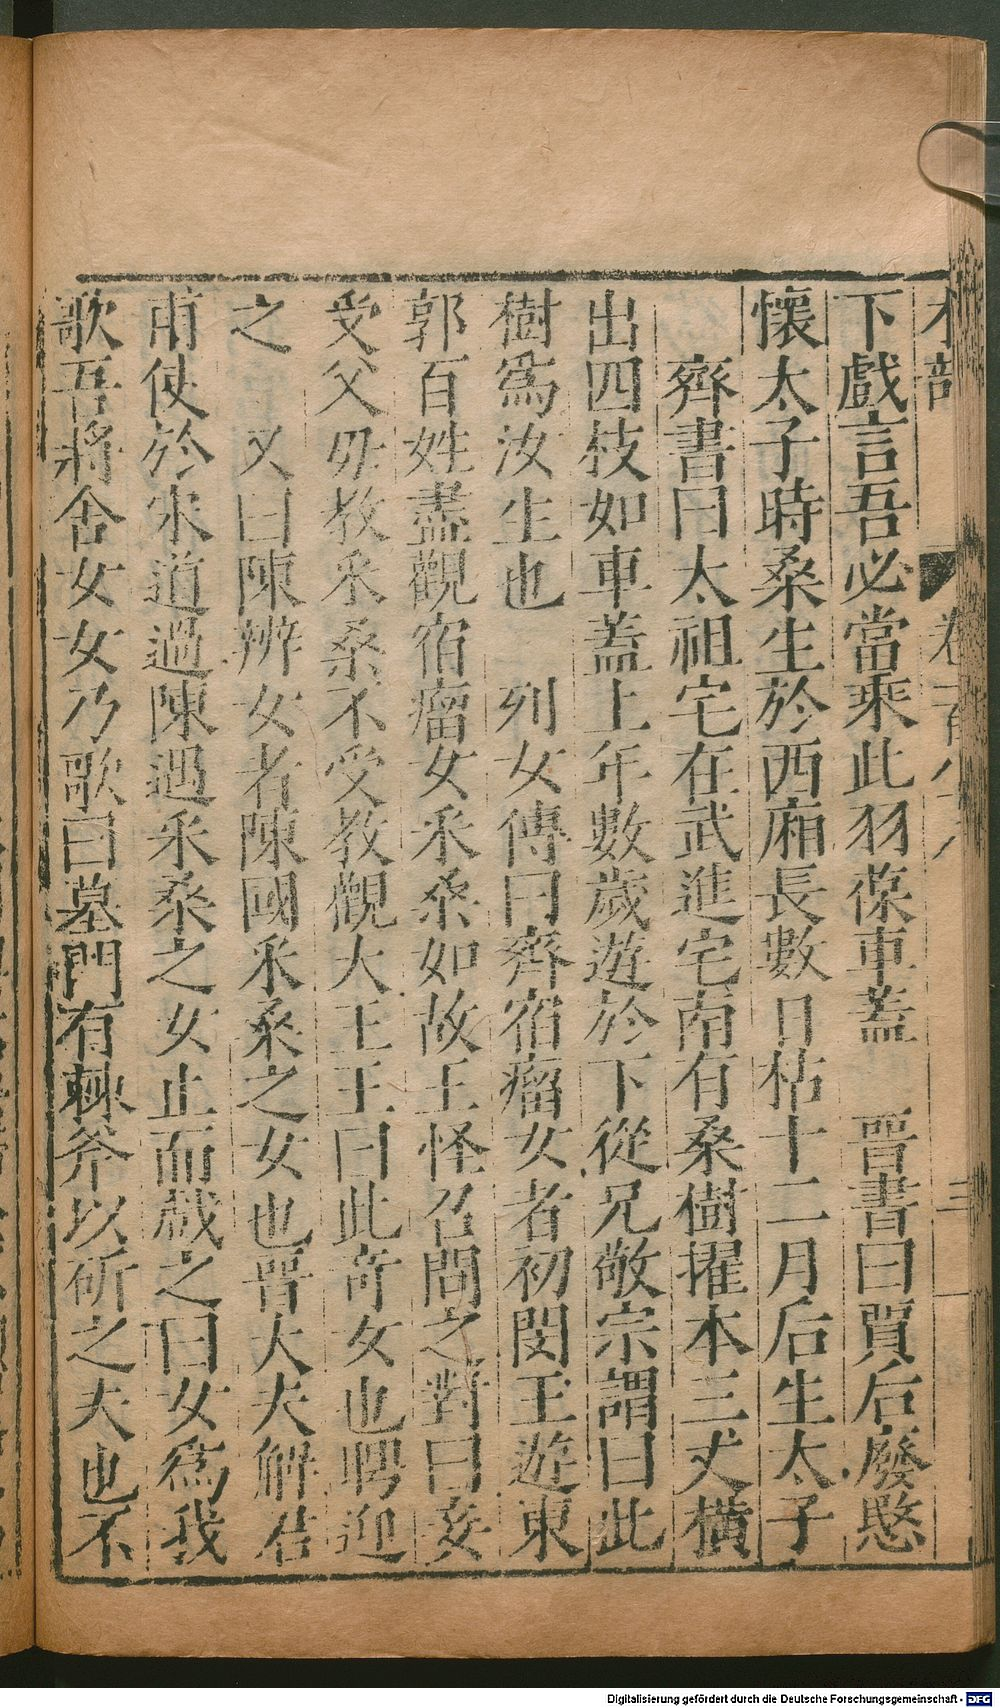 木部
下戲言吾必當乘此羽葆車蓋　晋書曰賈后廢愍
懷太子時桑生於西廂長數日枯十二月后生太子
齊書曰太祖宅在武進宅南有桑樹擢本三丈橫
出四枝如車蓋上年數歲遊於下從兄敬宗謂曰此
樹爲汝生也　列女傳曰齊宿瘤女者初閔王遊東
郭百姓盡觀宿瘤女釆桑如故王怪召問之對曰妾
受父毋教釆桑不受教觀大王王曰此竒女也聘迎
之　又曰陳辨女者陳國釆桑之女也晋大夫解居
甫使於宋道過陳遇釆桑之女止而戱之曰女爲我
歌吾將舍女女乃歌曰墓門有棘斧以斫之夫也不
Digitalisierung gefördert durch die Deutsche Forschungsgemeinschaft - DFG